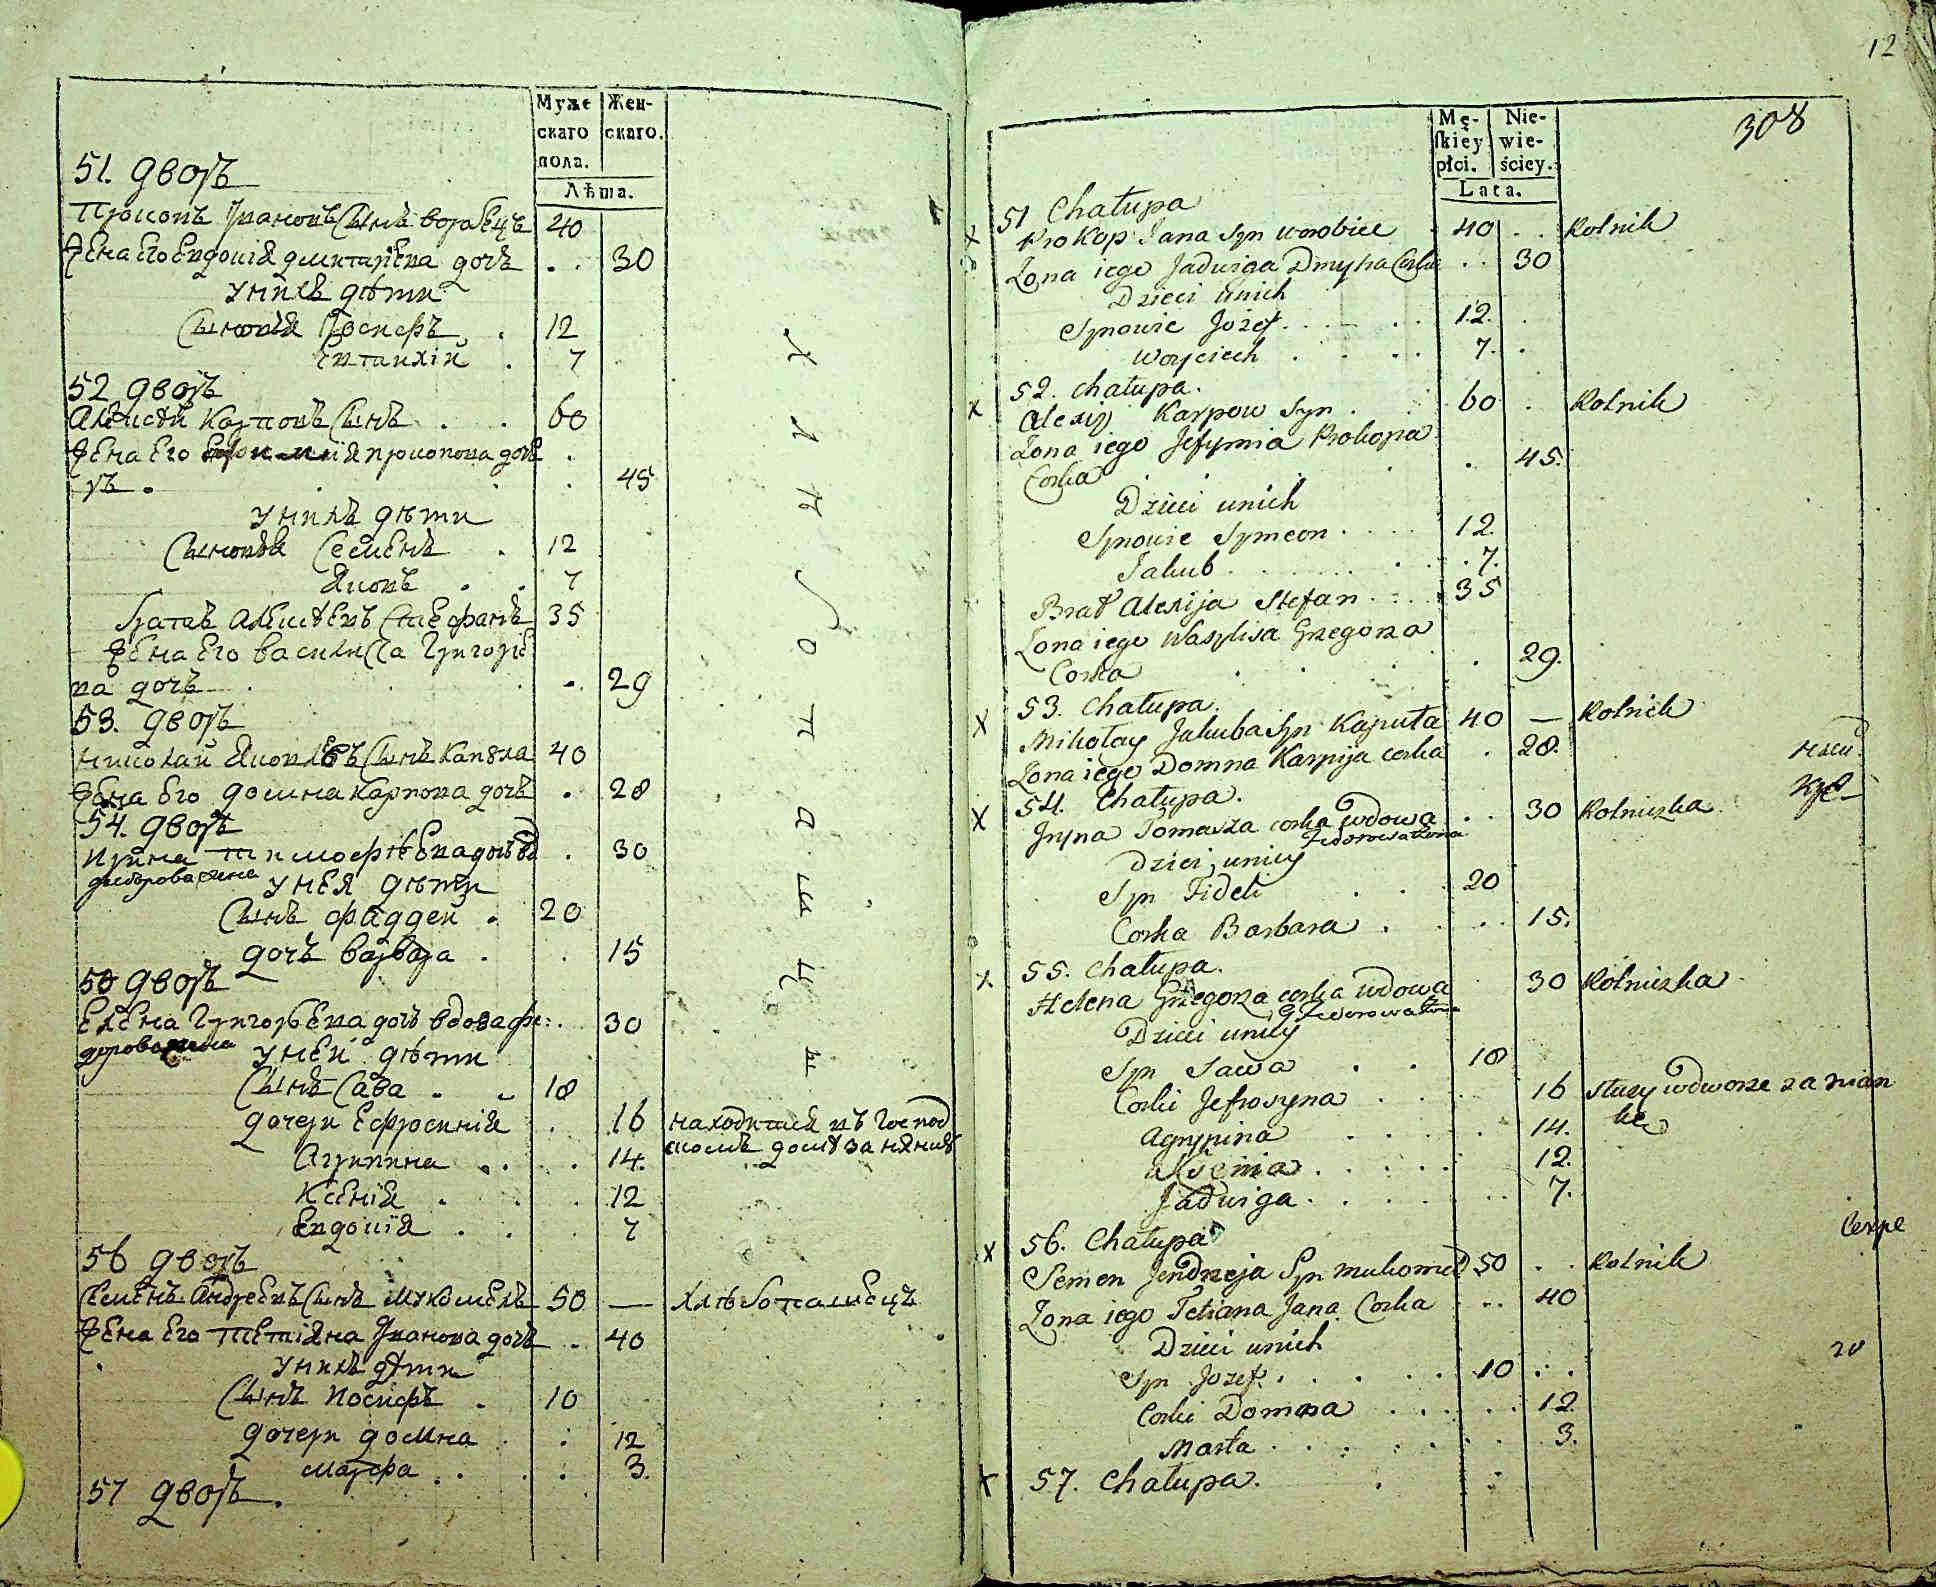 Муже
скаго
пола.
Жен-
скаго.
Лѣта.
51. дворъ
Прокопъ Ивановъ сынъ воробецъ 40
Жена его Евдокія дмитріева дочъ . . 30
у нихъ дѣти
сыновья Іосифъ . 12
Евтаихій . 7
52 дворъ
Алексѣй Карповъ сынъ . . 60
Жена его Евфимія прокопова доч
ъ . . . . 45
у нихъ дѣти
сыновья Семенъ . 12
Яковъ . . 7
братъ Алексѣевъ Стефанъ 35
Жена его василиса Григорiе
ва дочъ . . . . 29
53. дворъ
николай Яковлевъ сынъ Капула 40
Жена его домна Карпова дочъ . 28
54. дворъ
ирина Тимофѣева дочъ вд . 30
у нея дѣти
сынъ фаддей . 20
дочъ варвара . . 15
55 дворъ
Елена Григорьева дочъ вдова фе: . 30
у ней дѣти
сынъ Сава . . 18
дочери Ефросинія . 16 находится въ господ
скомъ домѣ за няньку
Агрипина . . . 14.
Ксенія . . . 12
Евдокія . . . 7
56 дворъ
Семенъ Андреевъ сынъ мукомелъ 50 — хлѣбопашецъ
Жена его Тетіяна Иванова дочъ . 40
у нихъ дѣти
сынъ Іосифъ . 10
дочери домна . . 12
марфа . . . 3.
57 дворъ.
х
л
ѣ
б
о
п
а
ш
ц
ы
12
308
Mę-
skiey
płci.
Nie-
wie-
ściey.
Lata.
51 Chałupa
x Prokop Jana Syn worobiec 40 . . Rolnik
Zona iego Jadwiga Dmytra Corka . . 30
Dzieci unich
Synowie Jozef . . . . 12. .
Woyciech . . . . 7. .
52. Chałupa.
x Alexiy Karpow Syn . . 60 . Rolnik
Zona iego Jefymia Prokopa
Corka . . . . 45.
Dzieci unich
Synowie Symeon . . . . 12.
Jakub . . . . 7.
Brat Alexija Stefan . . . 35
Zona iego Wasylisa Grzegorza
Corka . . . . 29.
53. Chałupa.
x Mikołay Jakuba Syn Kaputa 40 — Rolnik
Zona iego Domna Karpija corka . 28.
54. Chałupa.
x Jryna Tomasza corka wdowa . . 30 Rolniczka
Fedorowatkowa
Dzieci uniey
Syn Fideli . . 20
Corka Barbara . . . . 15.
55. Chałupa.
x Helena Grzegorza corka wdowa 30 Rolniczka
Fedorowatkowa
Dzieci uniey
Syn Sawa . . 18
Corki Jefrosyna . . . . 16 służy wdworze za nian
ke
Agrypina . . . . 14.
Aksenia . . . . . 12.
Jadwiga . . . . . . 7.
56. Chałupa
x Semen Jendrzeja Syn mukomeł 50 . . Rolnik
Zona iego Tetiana Jana Corka . . 40
Dzieci unich
Syn Jozef . . . . . 10 . .
Corki Domna . . . . . 12.
Marta . . . . . . 3.
x 57. Chałupa.